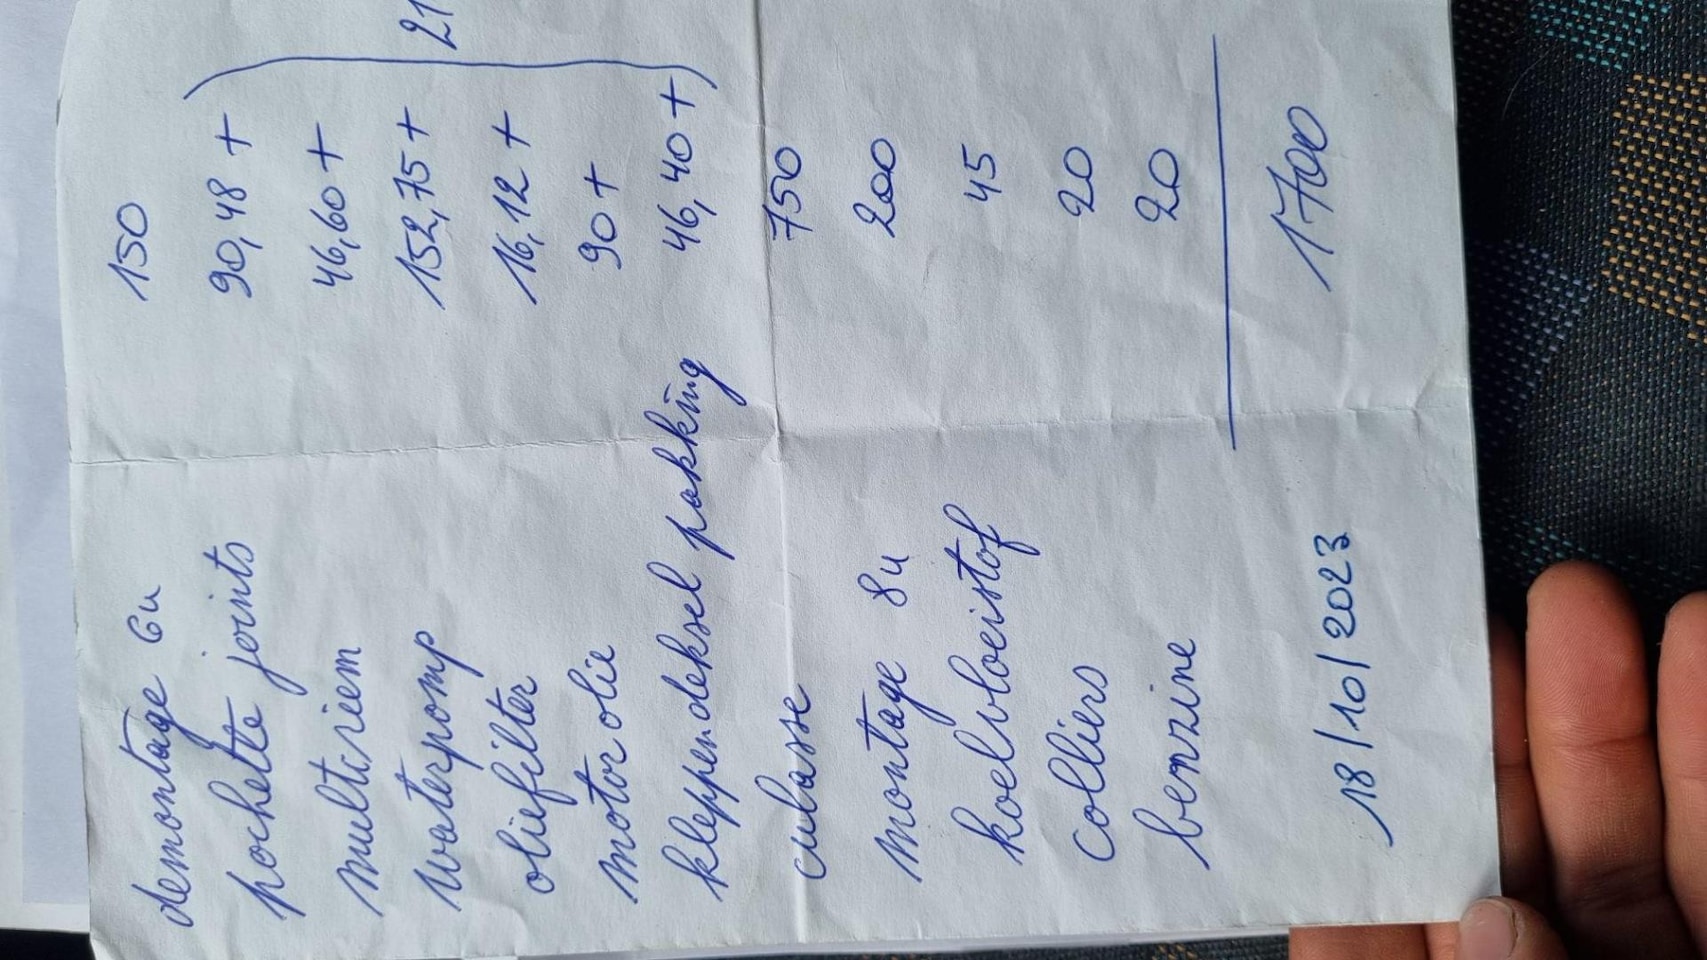 demontage 6u 150
pochette joints 90,48 +
multiriem 46,60 +
waterpomp 152,75 +
oliefilter 16,12 +
motorolie 90 +
kleppendeksel pakking 46,40 +
21
culasse 750
montage 8u 200
koelvloeistof 45
colliers 20
benzine 20
1700
18/10/2023